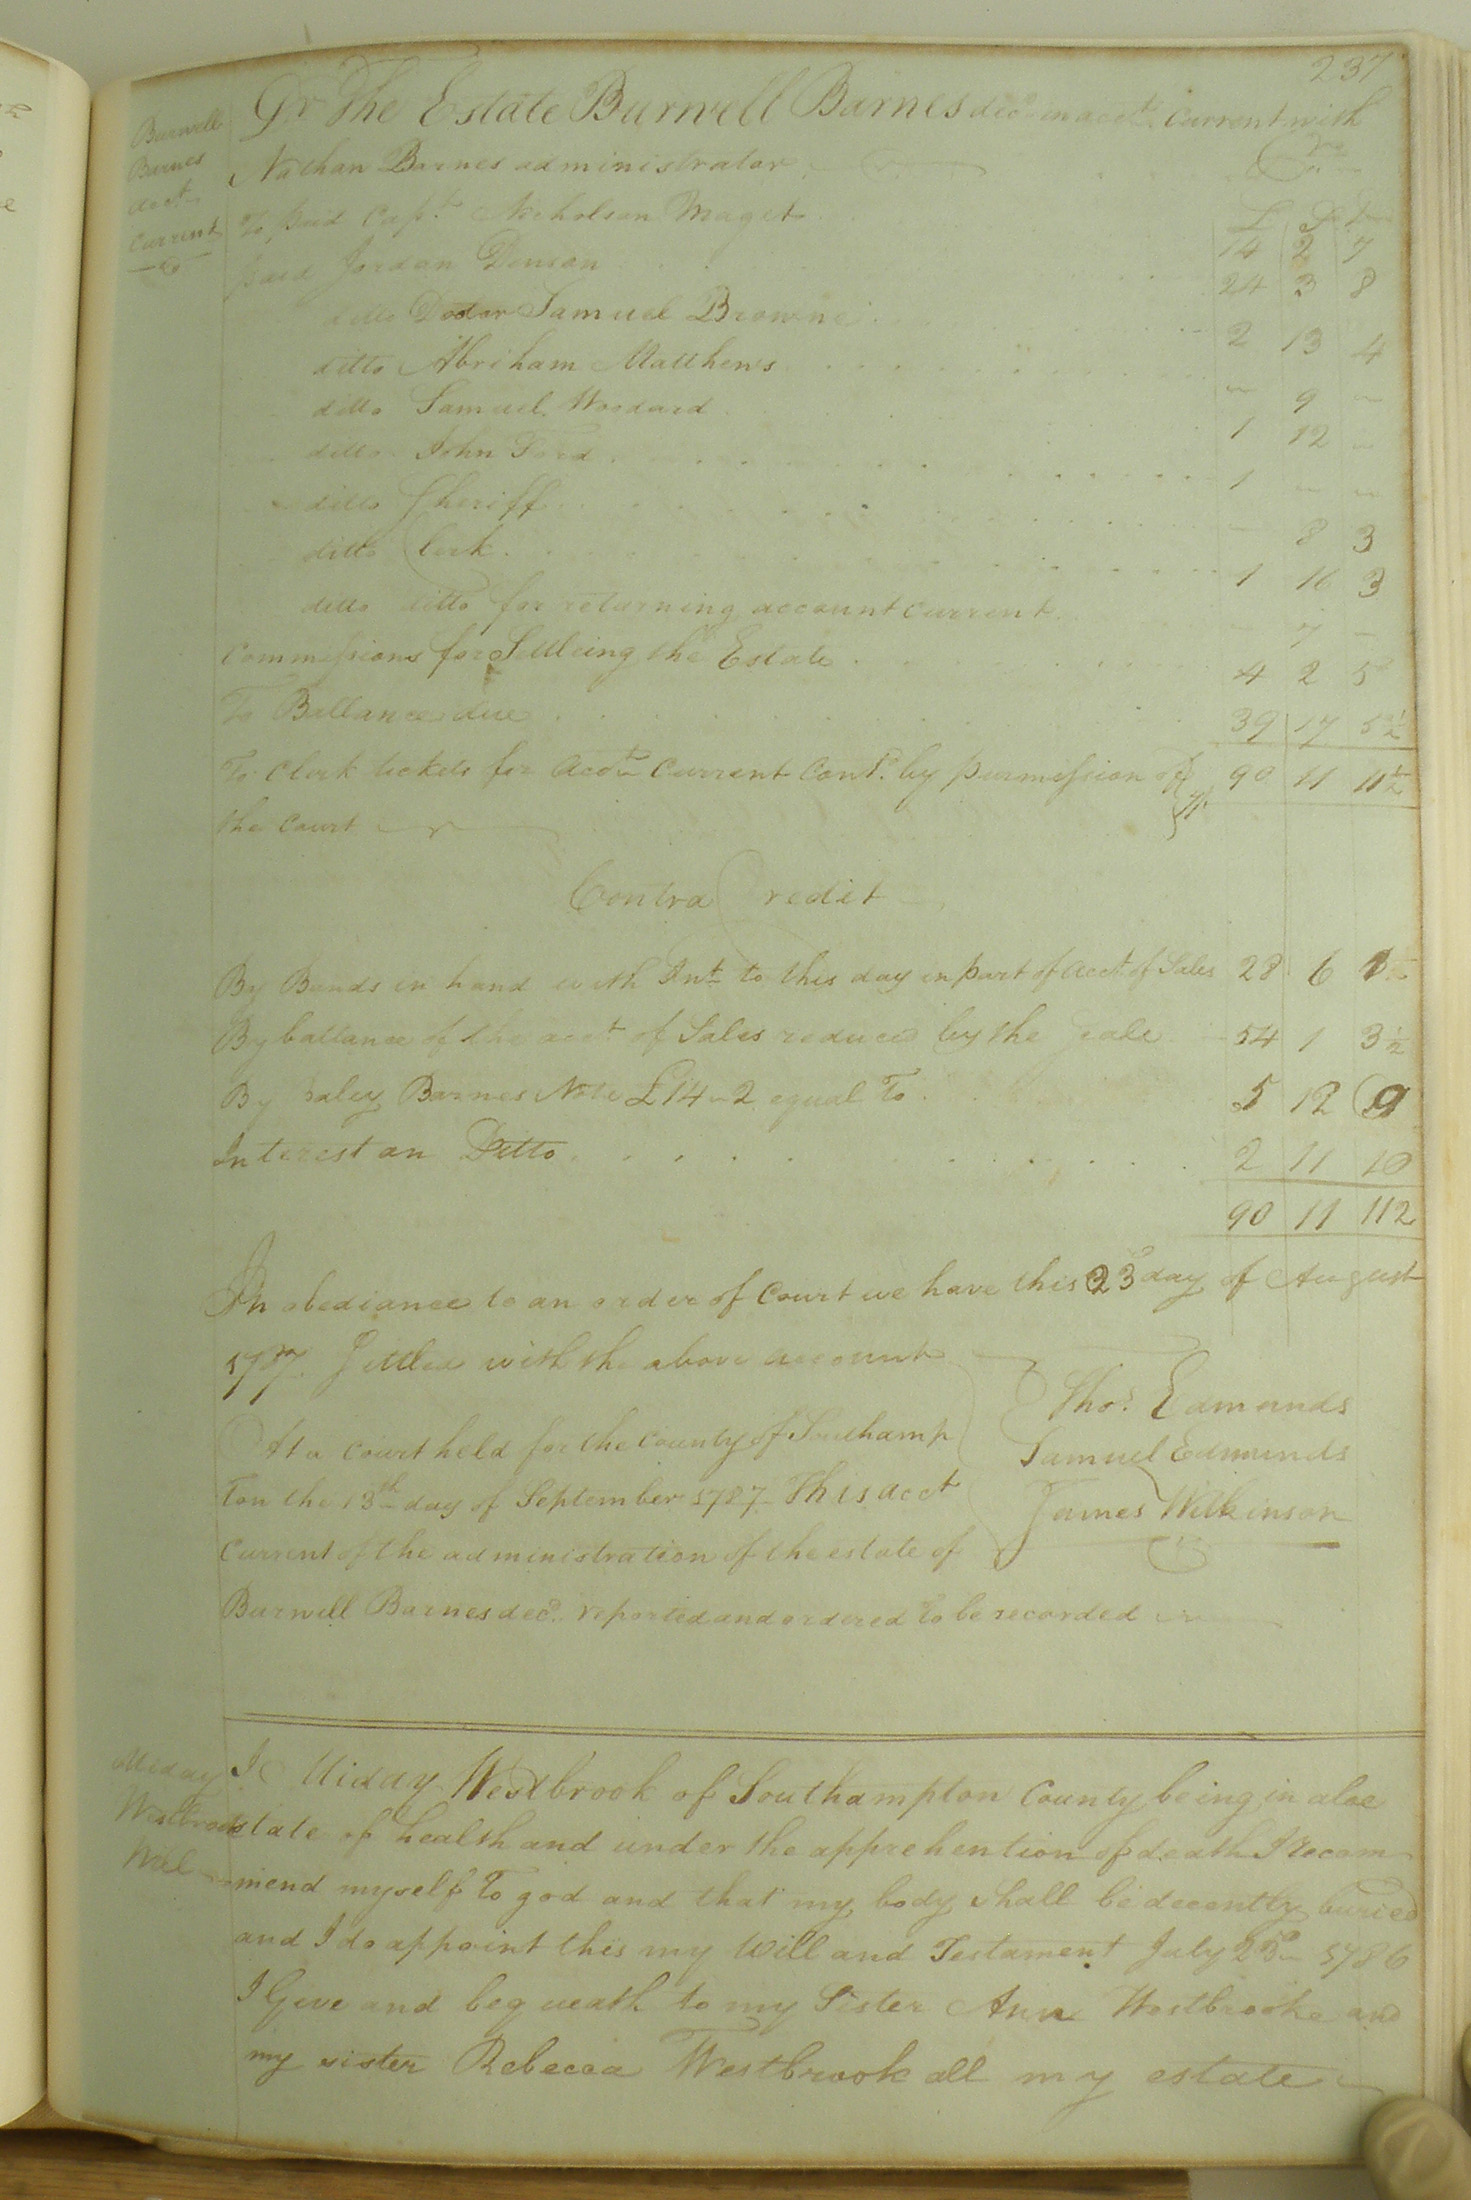 237
Burwell
Barnes
acct
Current
Dr The Estate Burwell Barnes decd in acct. Current with
Nathan Barnes administrator
Cr
£ S D
To paid Capt. Nicholson Maget 14 2 7
paid Jordan Denson 24 3 8
ditto Doctor Samuel Browne 2 13 4
ditto Abriham Matthews - 9 -
ditto Samuel Woodard 1 12 -
ditto John Ford 1 - -
ditto Sheriff - 8 3
ditto Clerk 1 16 3
ditto ditto for returning account current - 7 -
Commissions for Settleing the Estate 4 2 5
To Ballance due 39 17 5 1/2
To Clerk tickets for Accou Current Contd. by purmission of 90 11 11 1/2
the Court
Contra Credit
By Bonds in hand with Int to this day in part of acct of Sales 28 6 1
By ballance of the acct of Sales reduced by the Scale 54 1 3 1/2
By Barnes Note £14-2 equal To 5 12 9
Interest on Ditto 2 11 10
90 11 11 2
In obediance to an order of Court we have this 23d day of August
1787 Settled with the above account
Thos. Edmunds
Samuel Edmunds
James Wilkinson
At a Court held for the County of Southamp
ton the 13th day of September 1787 This acct
Current of the administration of the estate of
Burwell Barnes decd. reported and ordered to be recorded
Miday
Westbrook
Will
I Miday Westbrook of Southampton County being in a loe
state of health and under the apprehention of death I recom
mend myself To god and that my body shall be decently buried
and I do appoint this my Will and Testament July 25 1786
I Give and beqeuath to my Sister Ann Westbrooke and
my sister Rebecca Westbrook all my estate